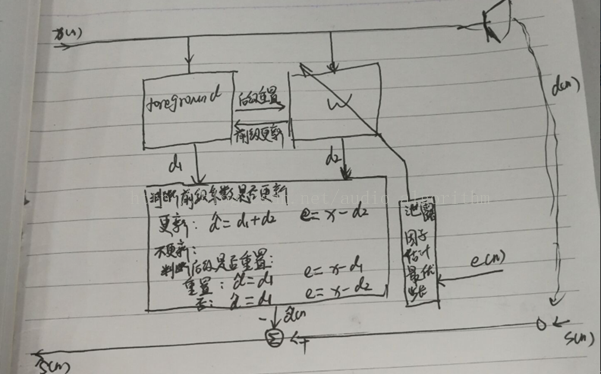 x(n)
d(n)
foreground
后级重置
前级更新
W
d₁
d₂
判断前级系数是否更新
更新: d̂=d₁+d₂ e=x-d₂
不更新:
判断后级是否重置:
重置: d̂=d₁ e=x-d₁
否: d̂=d₁ e=x-d₂
泄露
因子
估计
最优
步长
e(n)
- d̂(n)
Σ
+
s(n)
ŝ(n)